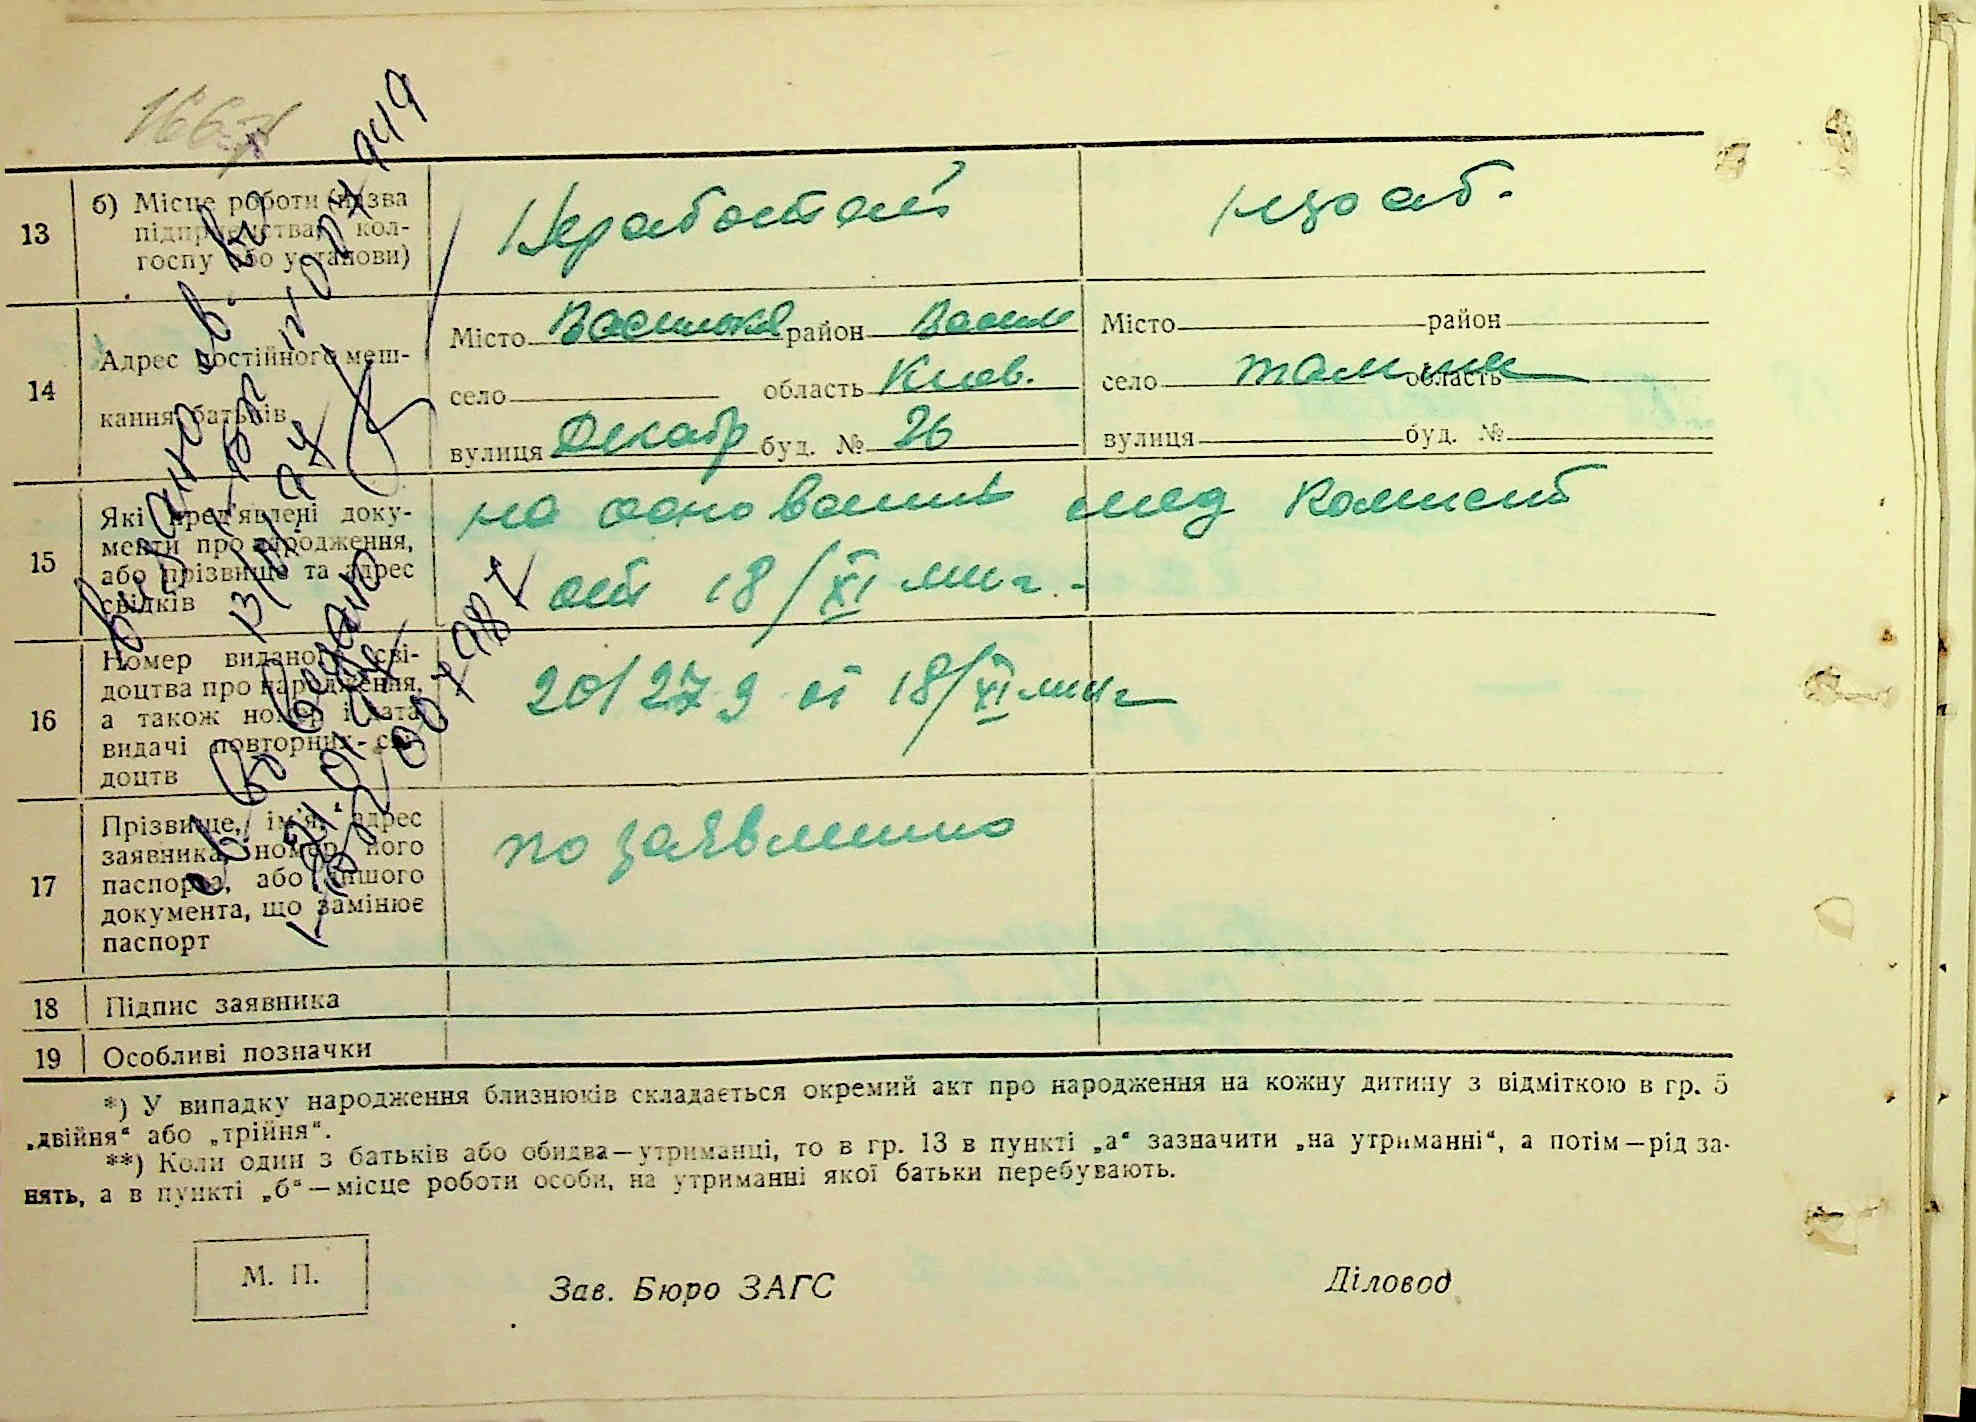 13
б) Місце роботи (назва
підприємства, кол-
госпу або установи)
Неработает
нераб.
14
Адрес постійного меш-
кання батьків
Місто Васильков район Васил
село область Киев.
вулиця Декабр буд. № 26
Місто район
село область
вулиця буд. №
15
Які пред'явлені доку-
менти про народження,
або прізвище та адрес
свідків
на основании мед комисий
от 18/XI
16
Номер виданого сві-
доцтва про народження,
а також номер і дата
видачі повторних сві-
доцтв
201279 от 18/XI
17
Прізвище, ім'я, адрес
заявника, номер його
паспорта, або іншого
документа, що замінює
паспорт
по заявлению
18 Підпис заявника
19 Особливі позначки
*) У випадку народження близнюків складається окремий акт про народження на кожну дитину з відміткою в гр. 5
„двійня“ або „трійня“.
**) Коли один з батьків або обидва—утриманці, то в гр. 13 в пункті „а“ зазначити „на утриманні“, а потім—рід за-
нять, а в пункті „б“—місце роботи особи, на утриманні якої батьки перебувають.
М. П.
Зав. Бюро ЗАГС
Діловод